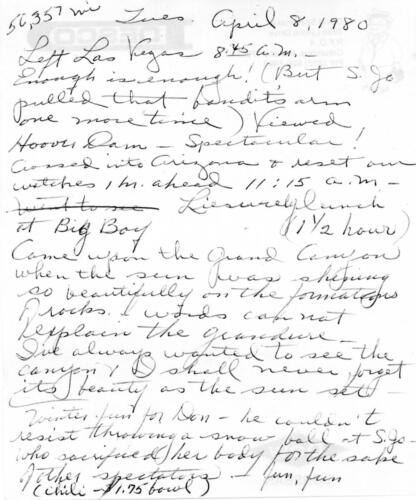 56,357 mi Tues. April 8, 1980
Left Las Vegas 8:45 a.m. -
Enough is enough! (But S. Jo
pulled that bandit's arm
one more time) Viewed
Hoover Dam - Spectacular!
Crossed into Arizona & reset our
watches 1 hr. ahead 11:15 a.m. -
Went to see Liesurely lunch
at Big Boy (1 1/2 hour)
Came upon the Grand Canyon
when the sun was shining
so beautifully on the formations
of rocks. Words can not
explain the grandure -
I've always wanted to see the
canyon & I shall never forget
its beauty as the sun set -
Winter fun for Don - he couldn't
resist throwing a snow ball at S. Jo -
who sacrificed her body for the sake
of other spectators - fun, fun
(Chili - $1.75 bowl)